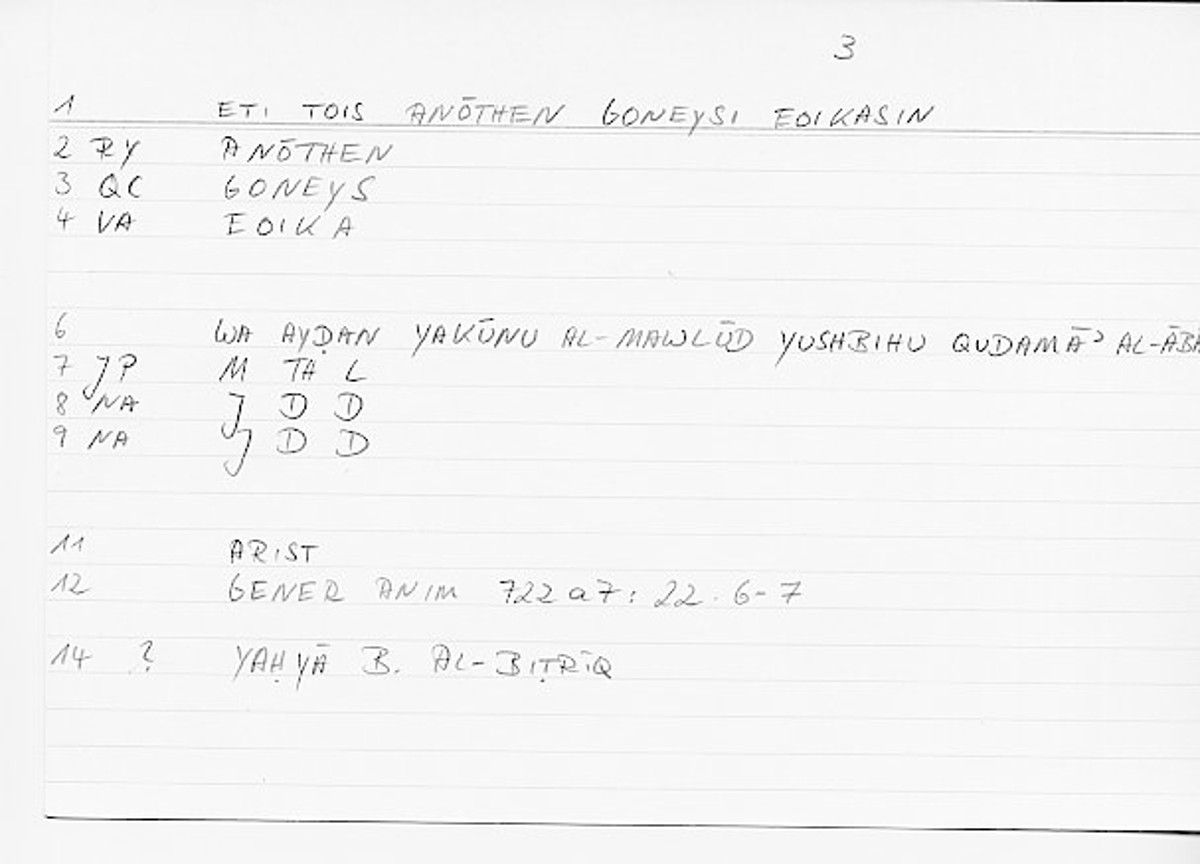 3
1 ETI TOIS ANŌTHEN GONEYSI EOIKASIN
2 RY ANŌTHEN
3 QC GONEYS
4 VA EOIKA
6 WA AYḌAN YAKŪNU AL-MAWLŪD YUSHBIHU QUDAMĀʾ AL-ĀBA
7 JP M TH L
8 NA J D D
9 NA J D D
11 ARIST
12 GENER ANIM 722a7: 22.6-7
14 ? YAḤYĀ B. AL-BIṬRĪQ